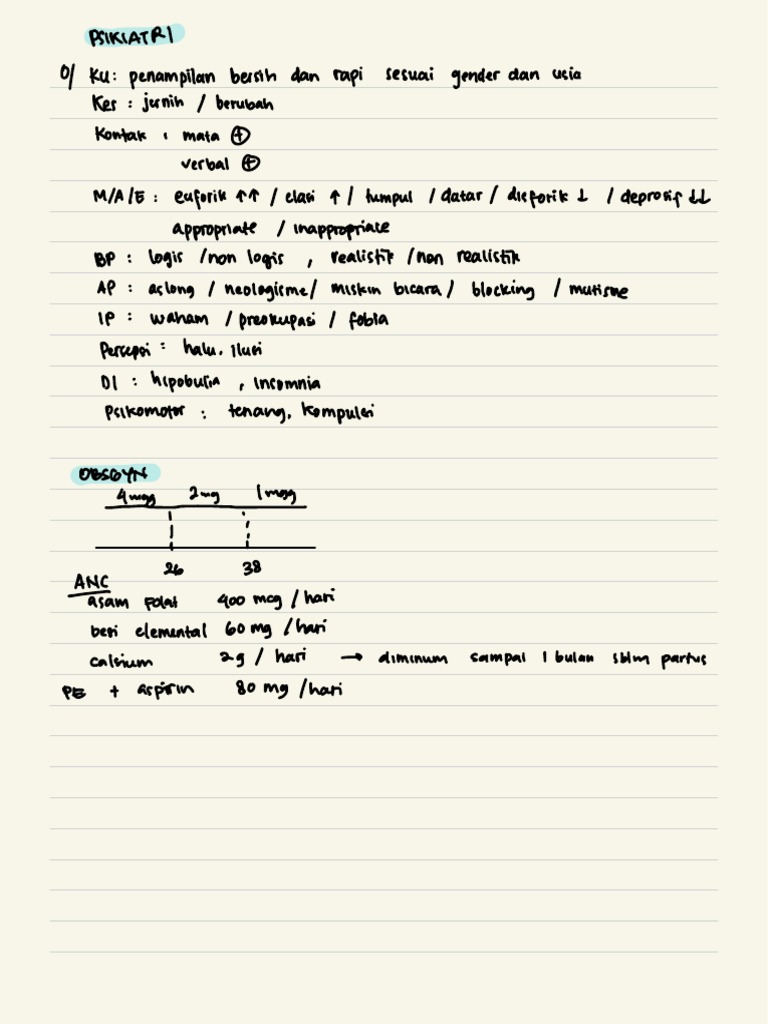 PSIKIATRI
O/ KU: penampilan bersih dan rapi sesuai gender dan usia
Kes : jernih / berubah
Kontak : mata ⊕
verbal ⊕
M/A/E : euforik ↑↑ / elasi ↑ / tumpul / datar / disforik ↓ / depresif ↓↓
appropriate / inappropriate
BP : logis / non logis , realistik / non realistik
AP : aslong / neologisme / miskin bicara / blocking / mutisme
IP : waham / preokupasi / fobia
Persepsi : halu. ilusi
DI : hipobulia , insomnia
Psikomotor : tenang, kompulsi
OBSGYN
4 mgg 2 mg 1 mgg
26 38
ANC
asam folat 400 mcg / hari
besi elemental 60 mg / hari
calsium 2 g / hari → diminum sampai 1 bulan sblm partus
PE + aspirin 80 mg / hari